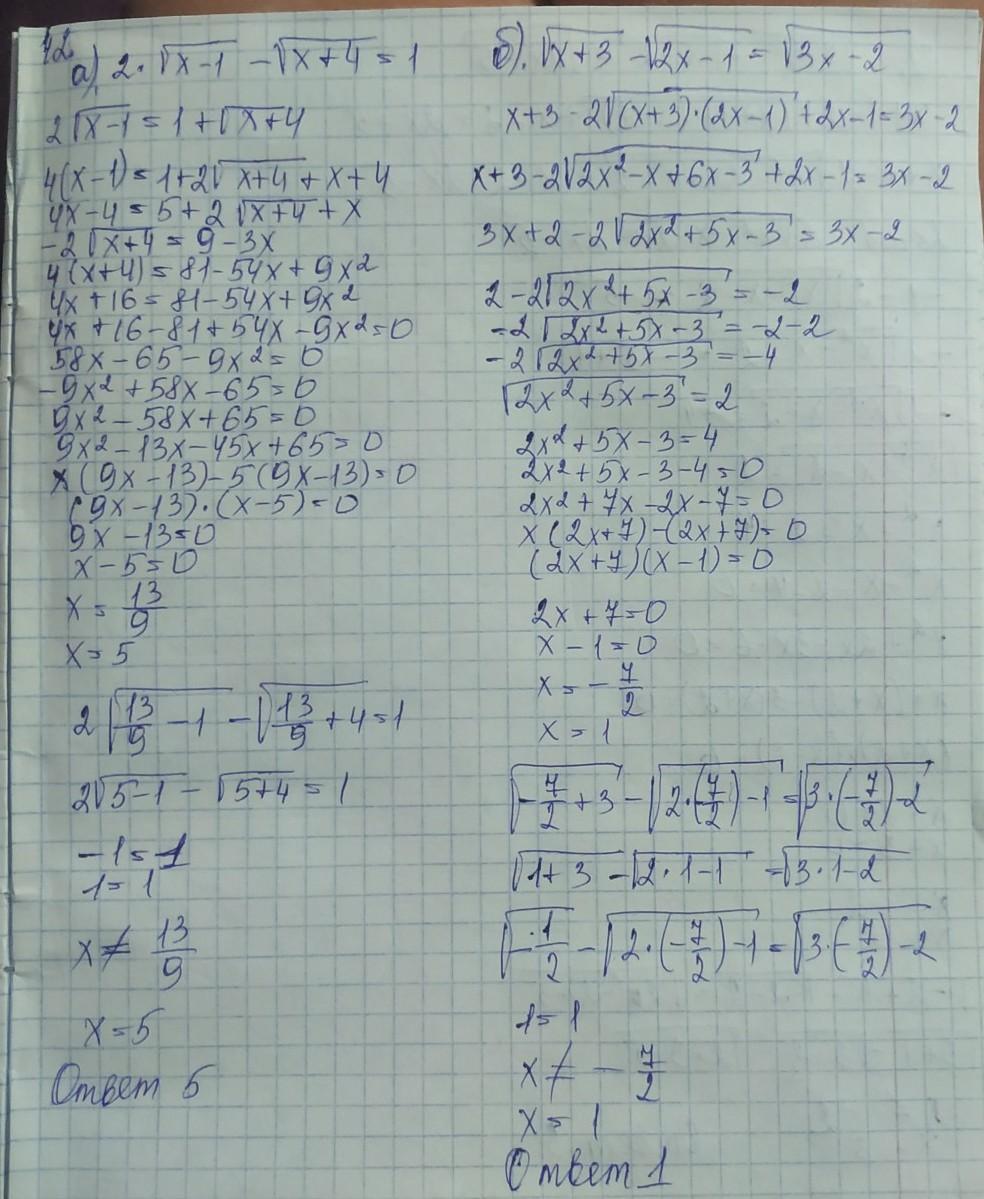 12
а) 2·√(x-1) - √(x+4) = 1
2√(x-1) = 1+√(x+4)
4(x-1) = 1+2√(x+4) + x+4
4x-4 = 5+2√(x+4) + x
-2√(x+4) = 9-3x
4(x+4) = 81-54x+9x²
4x+16 = 81-54x+9x²
4x+16-81+54x-9x²=0
58x-65-9x²=0
-9x²+58x-65=0
9x²-58x+65=0
9x²-13x-45x+65=0
x(9x-13)-5(9x-13)=0
(9x-13)·(x-5)=0
9x-13=0
x-5=0
x=13/9
x=5
2√(13/9-1) - √(13/9+4)=1
2√(5-1) - √(5+4) = 1
-1=1
1=1
x≠13/9
x=5
Ответ 5
б). √(x+3) - √(2x-1) = √(3x-2)
x+3-2√((x+3)·(2x-1)) + 2x-1=3x-2
x+3-2√(2x²-x+6x-3) + 2x-1=3x-2
3x+2-2√(2x²+5x-3) = 3x-2
2-2√(2x²+5x-3) = -2
-2√(2x²+5x-3) = -2-2
-2√(2x²+5x-3) = -4
√(2x²+5x-3) = 2
2x²+5x-3=4
2x²+5x-3-4=0
2x²+7x-2x-7=0
x(2x+7)-(2x+7)=0
(2x+7)(x-1)=0
2x+7=0
x-1=0
x=-7/2
x=1
√(-7/2+3) - √(2·(-7/2)-1) = √(3·(-7/2)-2)
√(1+3) - √(2·1-1) = √(3·1-2)
√(-1/2) - √(2·(-7/2)-1) = √(3·(-7/2)-2)
1=1
x≠-7/2
x=1
Ответ 1